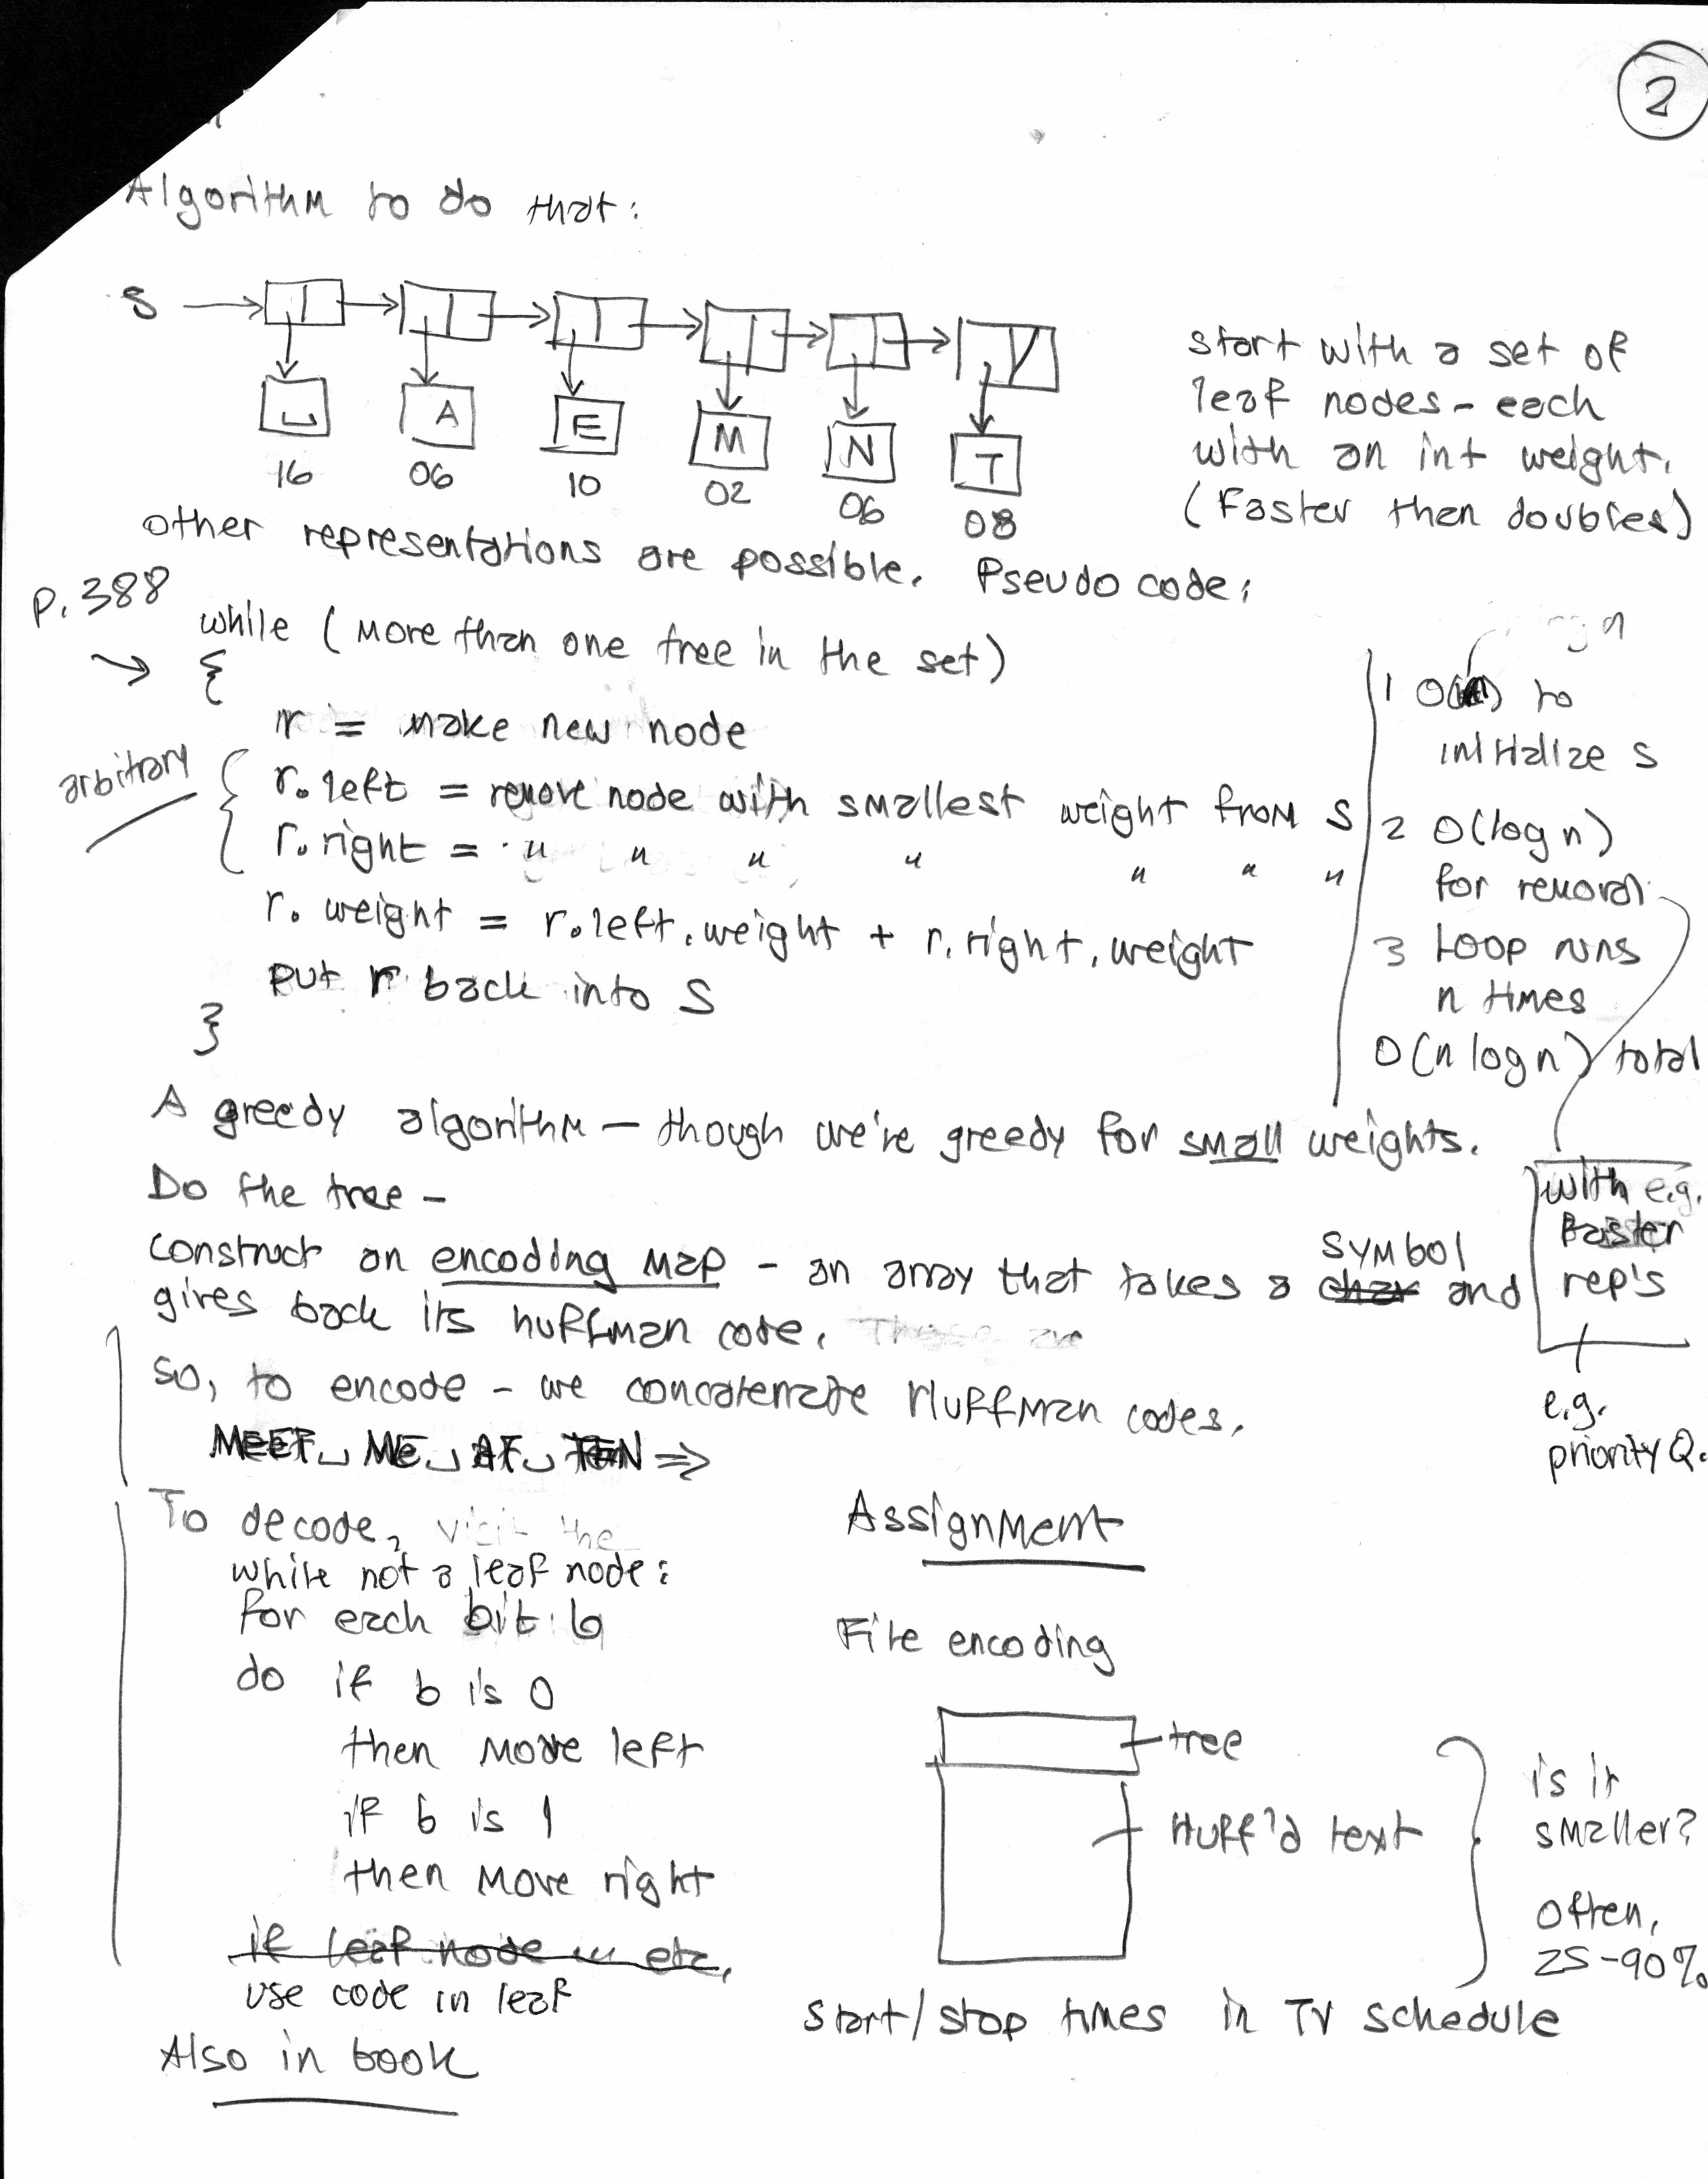 2
Algorithm to do that:
S
␣ A E M N T
16 06 10 02 06 08
start with a set of
leaf nodes - each
with an int weight.
(Faster then doubles)
other representations are possible. Pseudo code:
p. 388
while (more than one tree in the set)
{
r = make new node
arbitrary
r.left = remove node with smallest weight from S
r.right = " " " " " " "
r.weight = r.left.weight + r.right.weight
put r back into S
}
1 O( ) to
initialize S
2 O(log n)
for removal
3 Loop runs
n times
O(n log n) total
with e.g.
Faster
rep's
e.g.
priority Q.
A greedy algorithm — though we're greedy for small weights.
Do the tree -
construct an encoding map - an array that takes a char symbol and
gives back its huffman code.
so, to encode - we concatenate Huffman codes.
MEET␣ME␣AT␣TEN ⇒
To decode, visit the
while not a leaf node:
for each bit b
do if b is 0
then move left
if b is 1
then move right
if leaf node ... etc.
use code in leaf
Also in book
Assignment
File encoding
tree
Huff'd text
is it
smaller?
often,
25-90%
Start/stop times in TV schedule